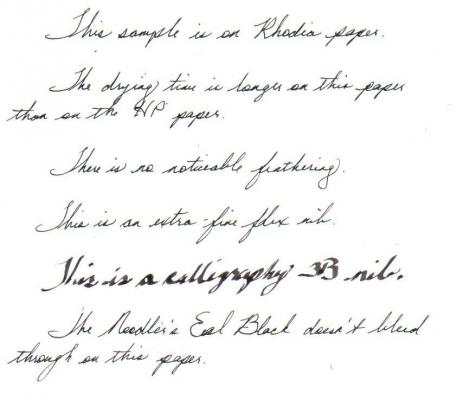 This sample is on Rhodia paper.
The drying time is longer on this paper
than on the HP paper.
There is no noticeable feathering.
This is an extra-fine flex nib.
This is a calligraphy 3B nib.
The Noodler's Eel Black doesn't bleed
through on this paper.